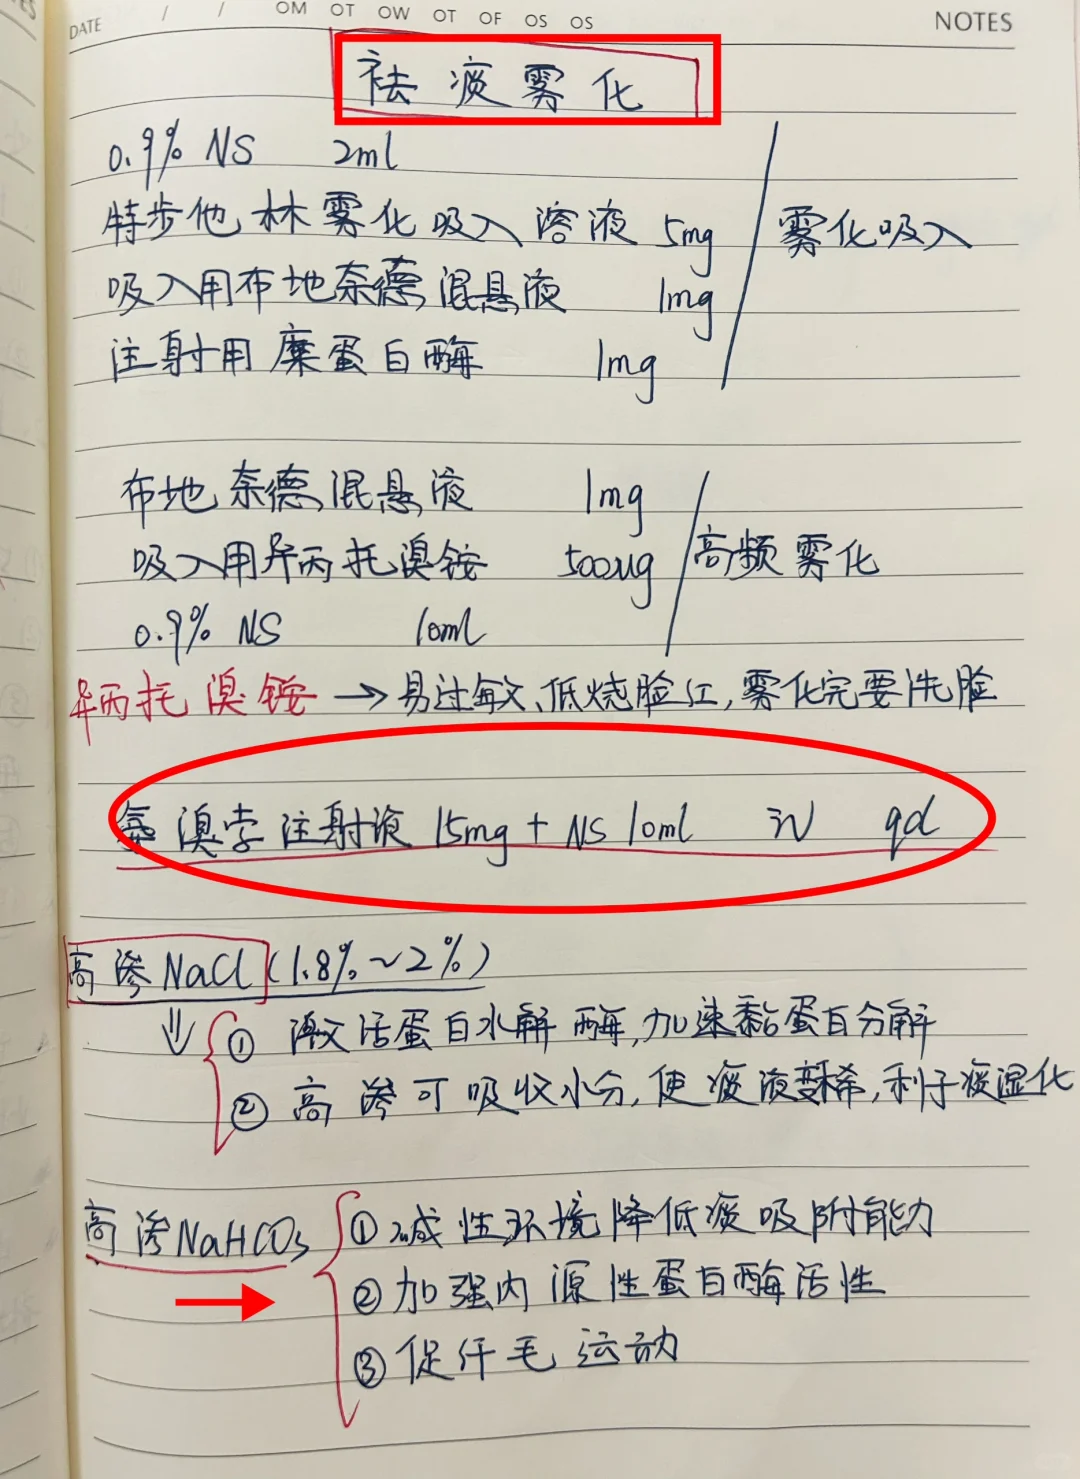 DATE / / OM OT OW OT OF OS OS NOTES
祛痰雾化
0.9% NS 2ml
特步他林雾化吸入溶液 5mg
雾化吸入
吸入用布地奈德混悬液 1mg
注射用糜蛋白酶 1mg
布地奈德混悬液 1mg
吸入用异丙托溴铵 500ug
高频雾化
0.9% NS 10ml
异丙托溴铵 → 易过敏、低烧脸红,雾化完要洗脸
氨溴索注射液 15mg + NS 10ml iv qd
高渗NaCl (1.8%~2%)
① 激活蛋白水解酶,加速黏蛋白分解
② 高渗可吸收水分,使痰液变稀,利于痰湿化
高渗NaHCO3
① 碱性环境降低痰吸附能力
② 加强内源性蛋白酶活性
③ 促纤毛运动